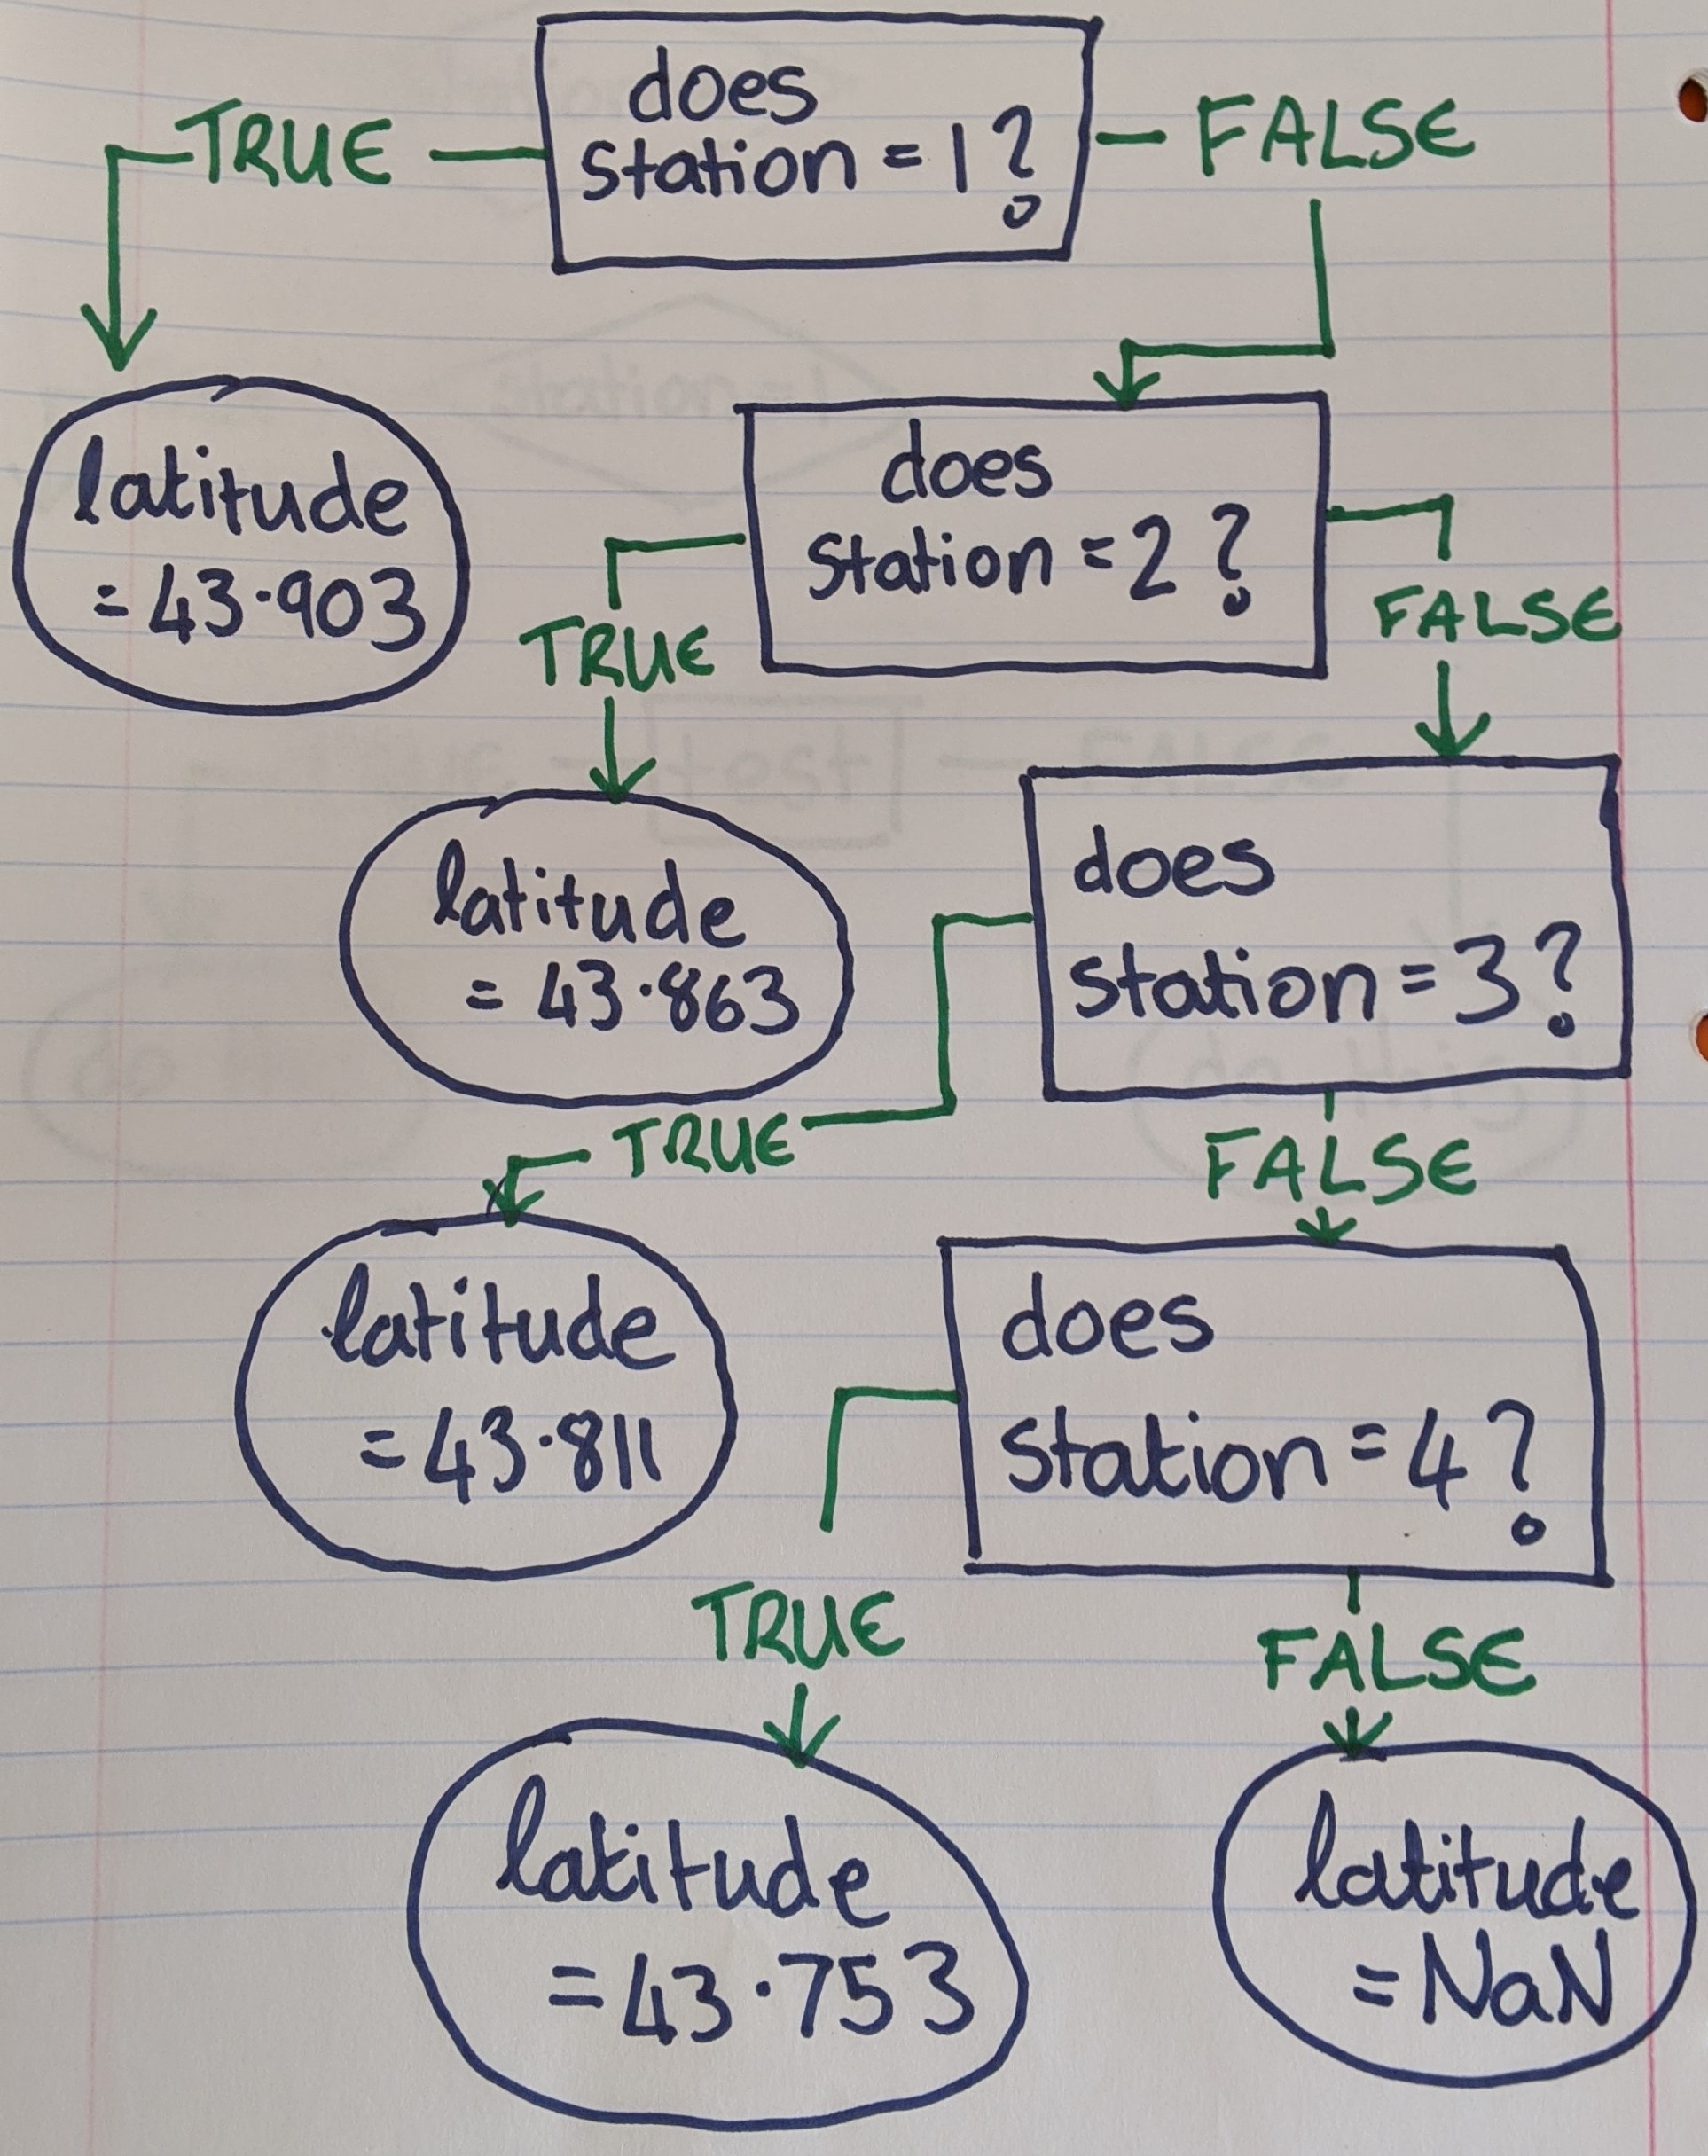 does
station = 1?
TRUE
FALSE
latitude
= 43.903
does
station = 2?
TRUE
FALSE
latitude
= 43.863
does
station = 3?
TRUE
FALSE
latitude
= 43.811
does
station = 4?
TRUE
FALSE
latitude
= 43.753
latitude
= NaN